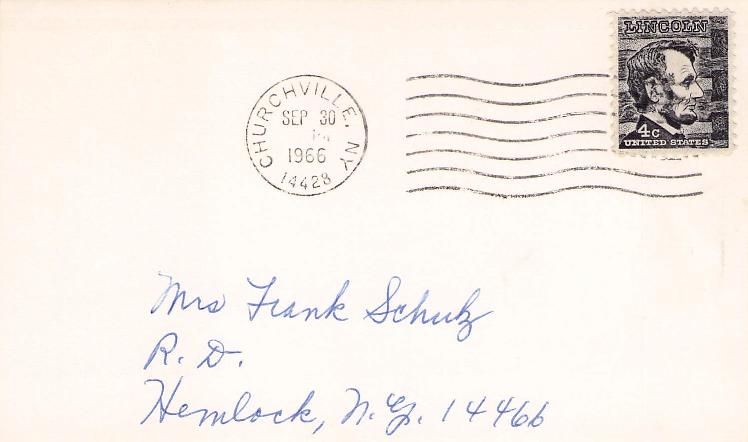 LINCOLN
4c
UNITED STATES
CHURCHVILLE, NY
SEP 30
PM
1966
14428
Mrs Frank Schulz
R. D.
Hemlock, N.Y. 14466